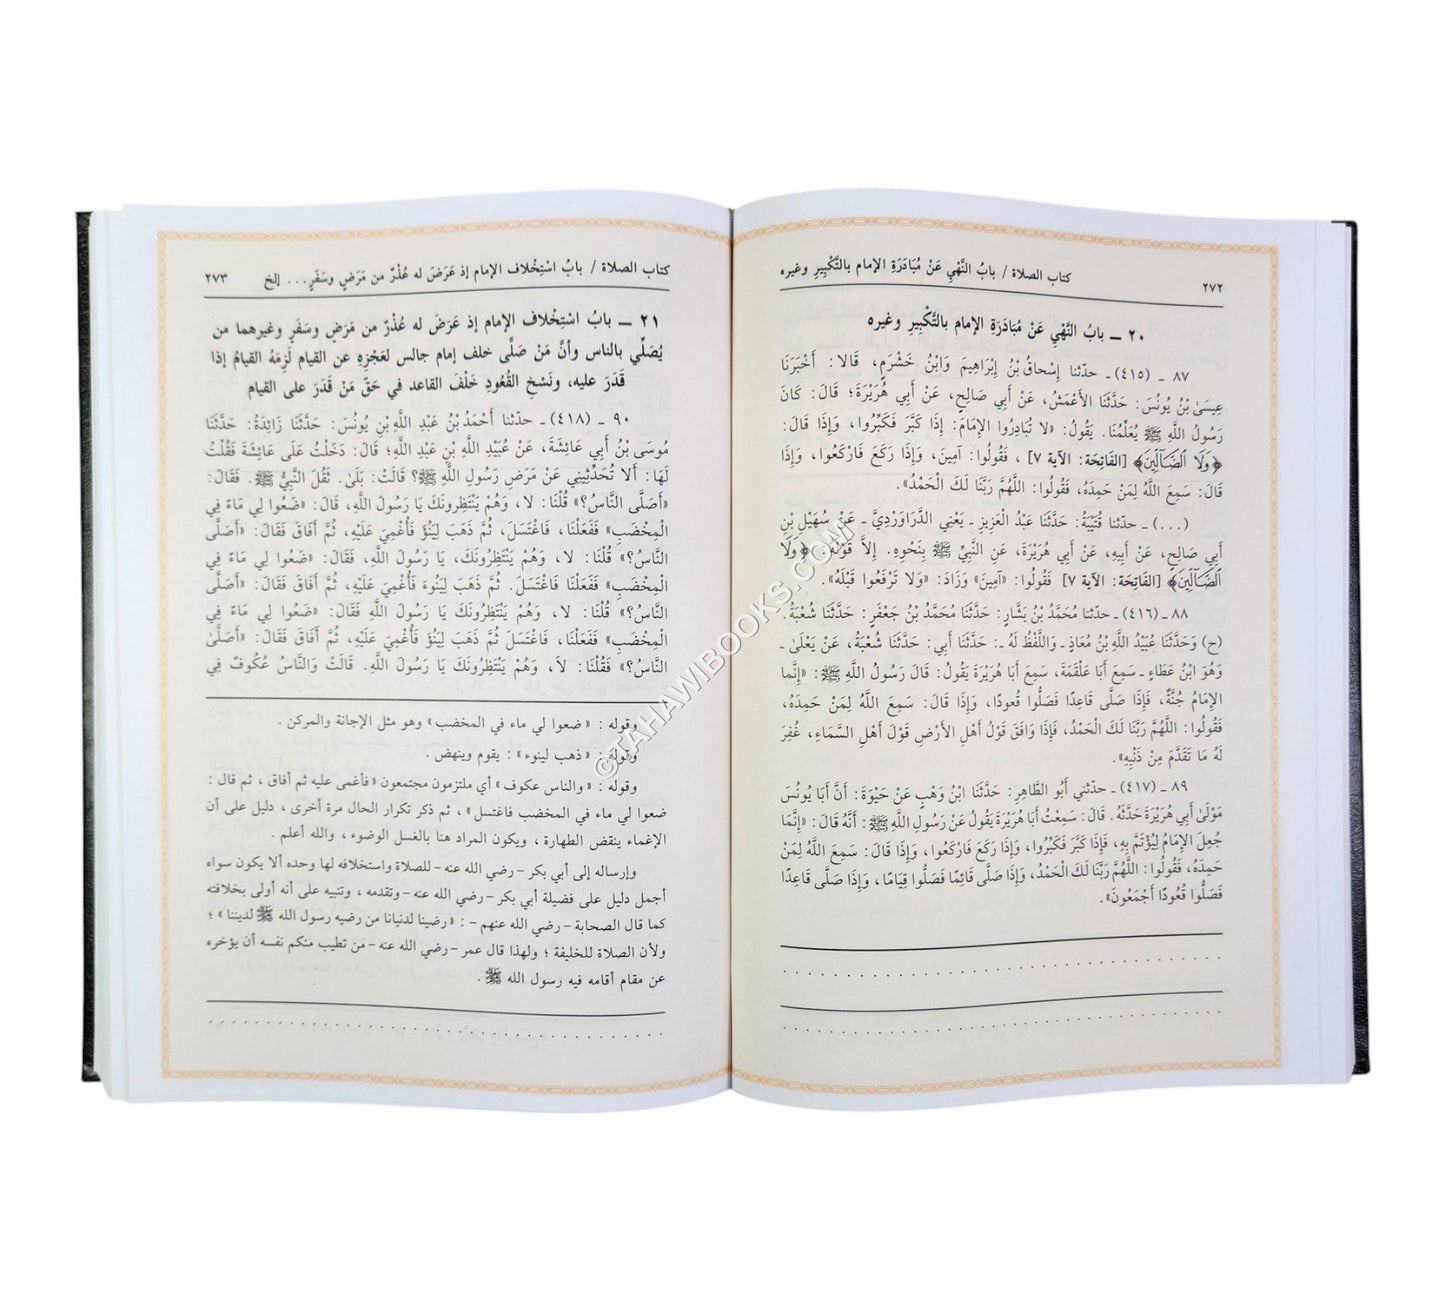 ٢٧٢
كتاب الصلاة / بابُ النَّهْيِ عَنْ مُبَادَرَةِ الإمام بالتَّكْبِيرِ وغيره
٢٠ ــ بابُ النَّهْيِ عَنْ مُبَادَرَةِ الإمام بالتَّكْبِيرِ وغيره
٨٧ ـ (٤١٥) ـ حدّثنا إِسْحاقُ بْنُ إِبْرَاهِيمَ وَابْنُ خَشْرَمٍ، قَالا: أَخْبَرَنَا
عِيسَىٰ بْنُ يُونُسَ: حَدَّثَنَا الأَعْمَشُ، عَنْ أَبِي صَالِحٍ، عَنْ أَبِي هُرَيْرَةَ؛ قَالَ: كَانَ
رَسُولُ اللَّهِ ﷺ يُعَلِّمُنَا. يَقُولُ: «لا تُبَادِرُوا الإِمَامَ: إِذَا كَبَّرَ فَكَبِّرُوا، وَإِذَا قَالَ:
﴿وَلَا ٱلضَّآلِّينَ﴾ [الفَاتِحَة: الآية ٧] ، فَقُولُوا: آمِينَ، وَإِذَا رَكَعَ فَارْكَعُوا، وَإِذَا
قَالَ: سَمِعَ اللَّهُ لِمَنْ حَمِدَهُ، فَقُولُوا: اللَّهُمَّ رَبَّنَا لَكَ الْحَمْدُ».
(...) ـ حدّثنا قُتَيْبَةُ: حَدَّثَنَا عَبْدُ الْعَزِيزِ ـ يَعْنِي الدَّرَاوَرْدِيَّ ـ عَنْ سُهَيْلِ بْنِ
أَبِي صَالِحٍ، عَنْ أَبِيهِ، عَنْ أَبِي هُرَيْرَةَ، عَنِ النَّبِيِّ ﷺ بِنَحْوِهِ. إِلاَّ قَوْلَهُ: ﴿وَلَا
ٱلضَّآلِّينَ﴾ [الفَاتِحَة: الآية ٧] فَقُولُوا: «آمِينَ» وَزَادَ: «وَلا تَرْفَعُوا قَبْلَهُ».
٨٨ ـ (٤١٦) ـ حدّثنا مُحَمَّدُ بْنُ بَشَّارٍ: حَدَّثَنَا مُحَمَّدُ بْنُ جَعْفَرٍ: حَدَّثَنَا شُعْبَةُ.
(ح) وَحَدَّثَنَا عُبَيْدُ اللَّهِ بْنُ مُعَاذٍ ـ وَاللَّفْظُ لَهُ ـ: حَدَّثَنَا أَبِي: حَدَّثَنَا شُعْبَةُ، عَنْ يَعْلَىٰ ـ
وَهُوَ ابْنُ عَطَاءٍ ـ سَمِعَ أَبَا عَلْقَمَةَ، سَمِعَ أَبَا هُرَيْرَةَ يَقُولُ: قَالَ رَسُولُ اللَّهِ ﷺ: «إِنَّما
الإِمَامُ جُنَّةٌ، فَإِذَا صَلَّى قَاعِدًا فَصَلُّوا قُعودًا، وَإِذَا قَالَ: سَمِعَ اللَّهُ لِمَنْ حَمِدَهُ،
فَقُولُوا: اللَّهُمَّ رَبَّنَا لَكَ الْحَمْدُ، فَإِذَا وَافَقَ قَوْلُ أَهْلِ الأَرْضِ قَوْلَ أَهْلِ السَّمَاءِ، غُفِرَ
لَهُ مَا تَقَدَّمَ مِنْ ذَنْبِهِ».
٨٩ ـ (٤١٧) ـ حدّثني أَبُو الطَّاهِرِ: حَدَّثَنَا ابْنُ وَهْبٍ عَنْ حَيْوَةَ: أَنَّ أَبَا يُونُسَ
مَوْلَىٰ أَبِي هُرَيْرَةَ حَدَّثَهُ. قَالَ: سَمِعْتُ أَبَا هُرَيْرَةَ يَقُولُ عَنْ رَسُولِ اللَّهِ ﷺ: أَنَّهُ قَالَ: «إِنَّمَا
جُعِلَ الإِمَامُ لِيُؤْتَمَّ بِهِ، فَإِذَا كَبَّرَ فَكَبِّرُوا، وَإِذَا رَكَعَ فَارْكَعُوا، وَإِذَا قَالَ: سَمِعَ اللَّهُ لِمَنْ
حَمِدَهُ، فَقُولُوا: اللَّهُمَّ رَبَّنَا لَكَ الْحَمْدُ، وَإِذَا صَلَّى قَائِمًا فَصَلُّوا قِيَامًا، وَإِذَا صَلَّى قَاعِدًا
فَصَلُّوا قُعُودًا أَجْمَعُونَ».
كتاب الصلاة / بابُ اسْتِخْلاف الإمام إذ عَرَضَ له عُذْرٌ من مَرَضٍ وسَفَرٍ... إلخ
٢٧٣
٢١ ــ بابُ اسْتِخْلاف الإمام إذ عَرَضَ له عُذْرٌ من مَرَضٍ وسَفَرٍ وغيرهما من
يُصَلِّي بالناس وأنَّ مَنْ صَلَّى خلف إمام جالس لعَجْزِهِ عن القيام لَزِمَهُ القيامُ إذا
قَدَرَ عليه، ونَسْخِ القُعُودِ خَلْفَ القاعد في حَقّ مَنْ قَدَرَ على القيام
٩٠ ـ (٤١٨) ـ حدّثنا أَحْمَدُ بْنُ عَبْدِ اللَّهِ بْنِ يُونُسَ: حَدَّثَنَا زَائِدَةُ: حَدَّثَنَا
مُوسَى بْنُ أَبِي عَائِشَةَ، عَنْ عُبَيْدِ اللَّهِ بْنِ عَبْدِ اللَّهِ؛ قَالَ: دَخَلْتُ عَلَى عَائِشَةَ فَقُلْتُ
لَهَا: أَلا تُحَدِّثِينِي عَنْ مَرَضِ رَسُولِ اللَّهِ ﷺ؟ قَالَتْ: بَلَىٰ. ثَقُلَ النَّبِيُّ ﷺ. فَقَالَ:
«أَصَلَّى النَّاسُ؟» قُلْنَا: لا، وَهُمْ يَنْتَظِرُونَكَ يَا رَسُولَ اللَّهِ، قَالَ: «ضَعُوا لِي مَاءً فِي
الْمِخْضَبِ» فَفَعَلْنَا، فَاغْتَسَلَ، ثُمَّ ذَهَبَ لِيَنُؤَ فَأُغْمِيَ عَلَيْهِ، ثُمَّ أَفَاقَ فَقَالَ: «أَصَلَّى
النَّاسُ؟» قُلْنَا: لا، وَهُمْ يَنْتَظِرُونَكَ، يَا رَسُولَ اللَّهِ، فَقَالَ: «ضَعُوا لِي مَاءً فِي
الْمِخْضَبِ» فَفَعَلْنَا فَاغْتَسَلَ. ثُمَّ ذَهَبَ لِيَنُوءَ فَأُغْمِيَ عَلَيْهِ، ثُمَّ أَفَاقَ فَقَالَ: «أَصَلَّى
النَّاسُ؟» قُلْنَا: لا، وَهُمْ يَنْتَظِرُونَكَ يَا رَسُولَ اللَّهِ فَقَالَ: «ضَعُوا لِي مَاءً فِي
الْمِخْضَبِ» فَفَعَلْنَا، فَاغْتَسَلَ ثُمَّ ذَهَبَ لِيَنُؤَ فَأُغْمِيَ عَلَيْهِ، ثُمَّ أَفَاقَ فَقَالَ: «أَصَلَّىٰ
النَّاسُ؟» فَقُلْنَا: لاَ، وَهُمْ يَنْتَظِرُونَكَ يَا رَسُولَ اللَّهِ. قَالَتْ وَالنَّاسُ عُكُوفٌ فِي
وقوله : «ضعوا لي ماء في المخضب» وهو مثل الإجانة والمركن .
وقوله : «ذهب لينوء» : يقوم وينهض .
وقوله : «والناس عكوف» أي ملتزمون مجتمعون «فأغمى عليه ثم أفاق ، ثم قال :
ضعوا لي ماء في المخضب فاغتسل» ، ثم ذكر تكرار الحال مرة أخرى ، دليل على أن
الإغماء ينقض الطهارة ، ويكون المراد هنا بالغسل الوضوء ، والله أعلم .
وإرساله إلى أبي بكر – رضي الله عنه – للصلاة واستخلافه لها وحده ألا يكون سواه
أجمل دليل على فضيلة أبي بكر – رضي الله عنه – وتقدمه ، وتنبيه على أنه أولى بخلافته
كما قال الصحابة – رضي الله عنهم – : «رضينا لدنيانا من رضيه رسول الله ﷺ لديننا» ؛
ولأن الصلاة للخليفة ؛ ولهذا قال عمر – رضي الله عنه – من تطيب منكم نفسه أن يؤخره
عن مقام أقامه فيه رسول الله ﷺ .
©TAHAWIBOOKS.COM